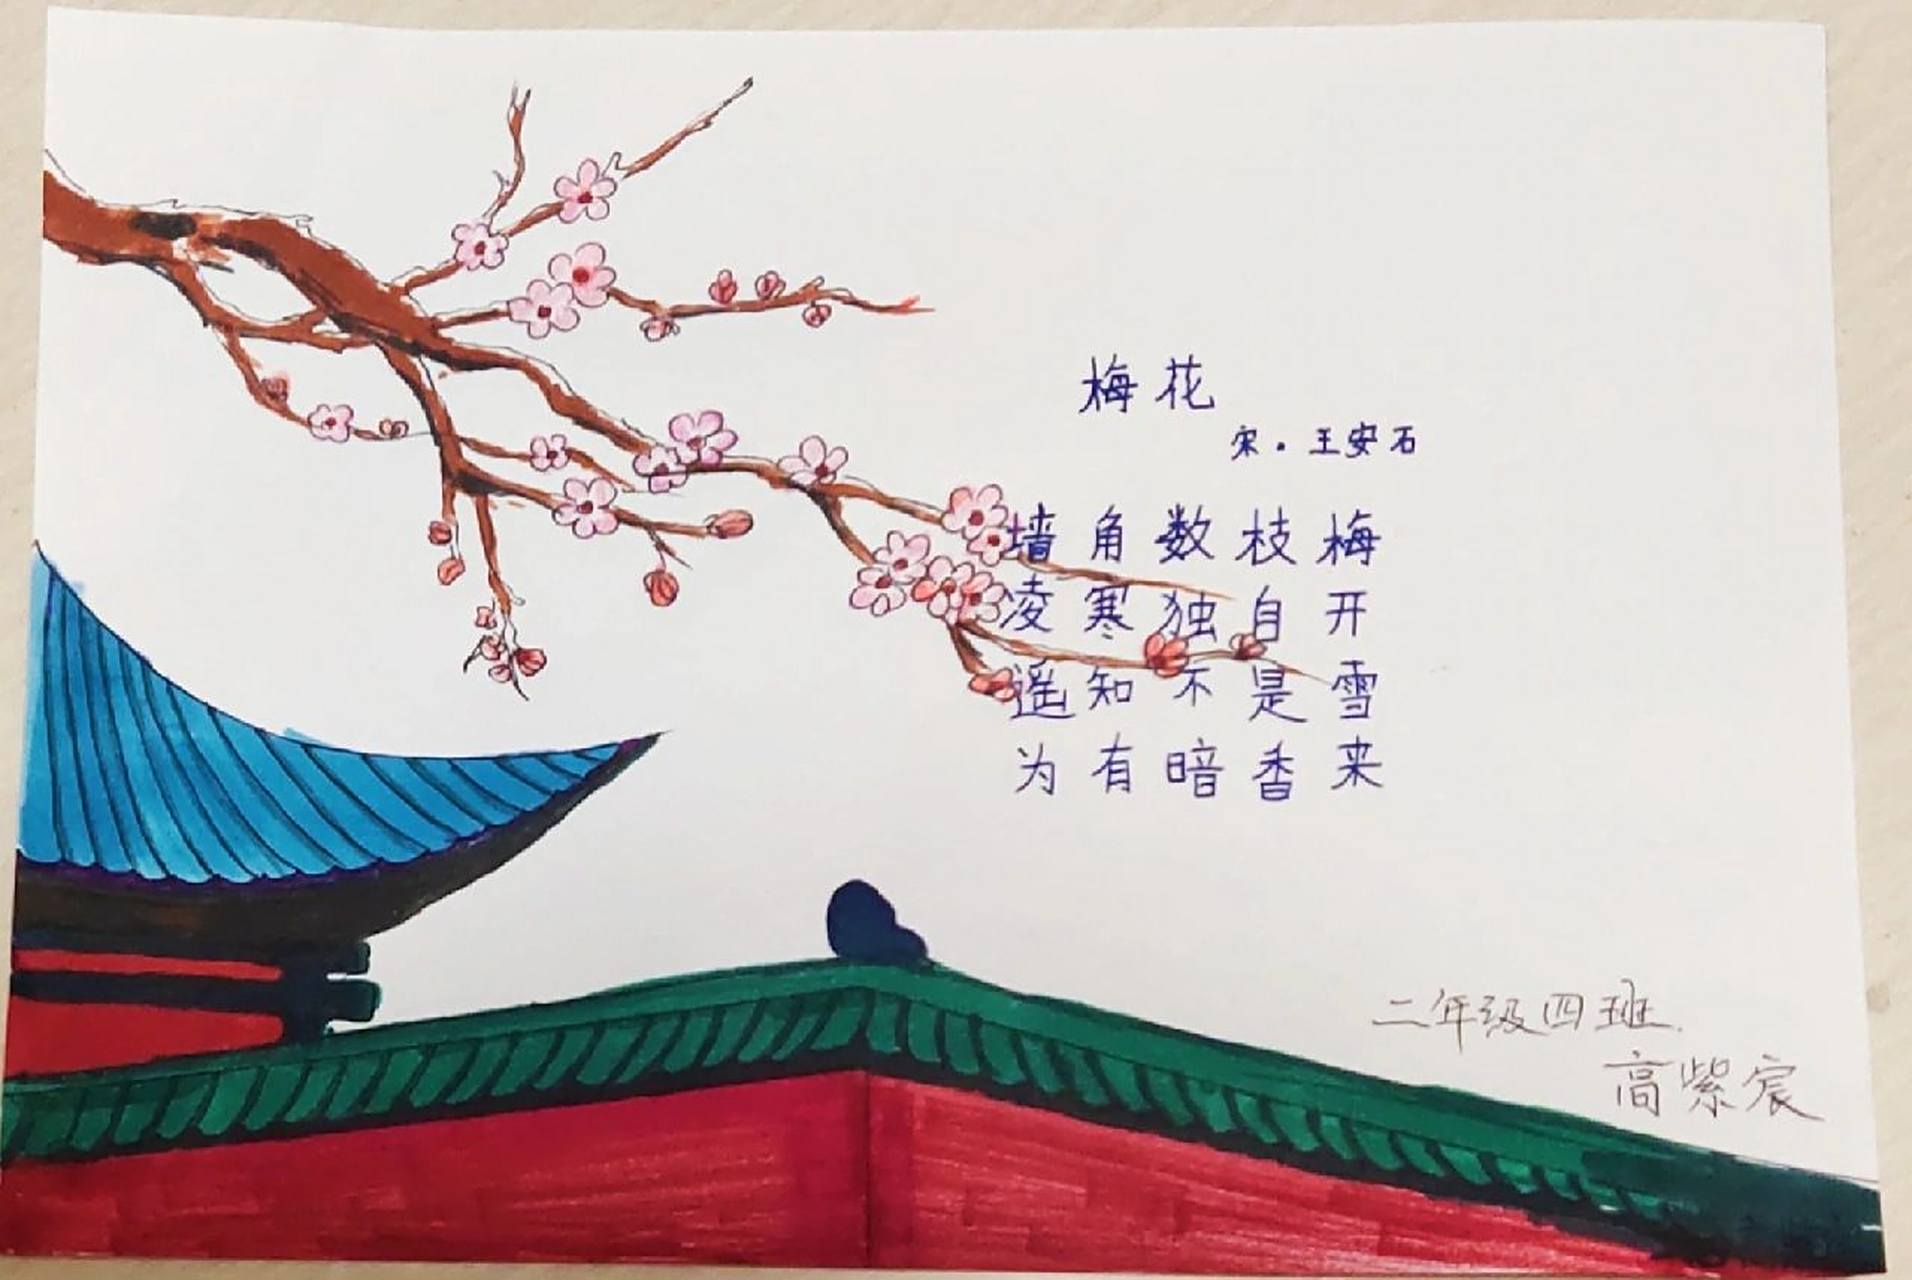 梅花
宋·王安石
墙角数枝梅
凌寒独自开
遥知不是雪
为有暗香来
二年级四班.
高紫宸